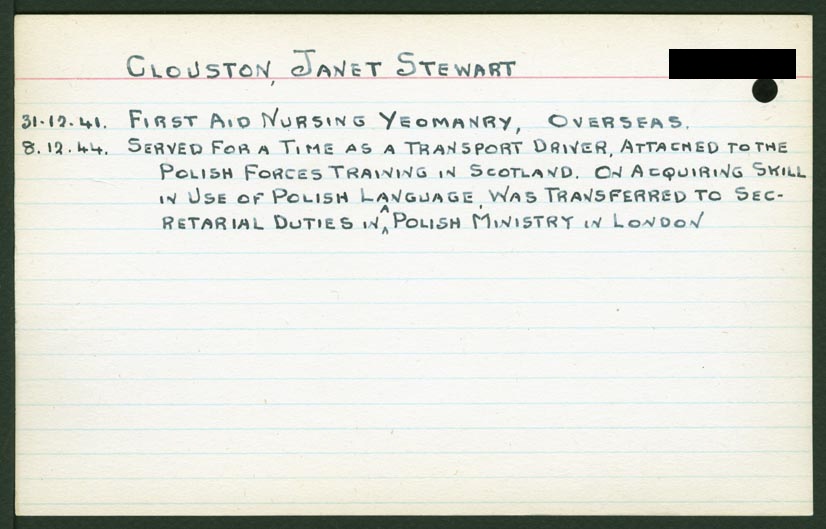 CLOUSTON, JANET STEWART
31.12.41. FIRST AID NURSING YEOMANRY, OVERSEAS.
8.12.44. SERVED FOR A TIME AS A TRANSPORT DRIVER, ATTACHED TO THE
POLISH FORCES TRAINING IN SCOTLAND. ON ACQUIRING SKILL
IN USE OF POLISH LANGUAGE, WAS TRANSFERRED TO SEC-
RETARIAL DUTIES IN ^ POLISH MINISTRY IN LONDON